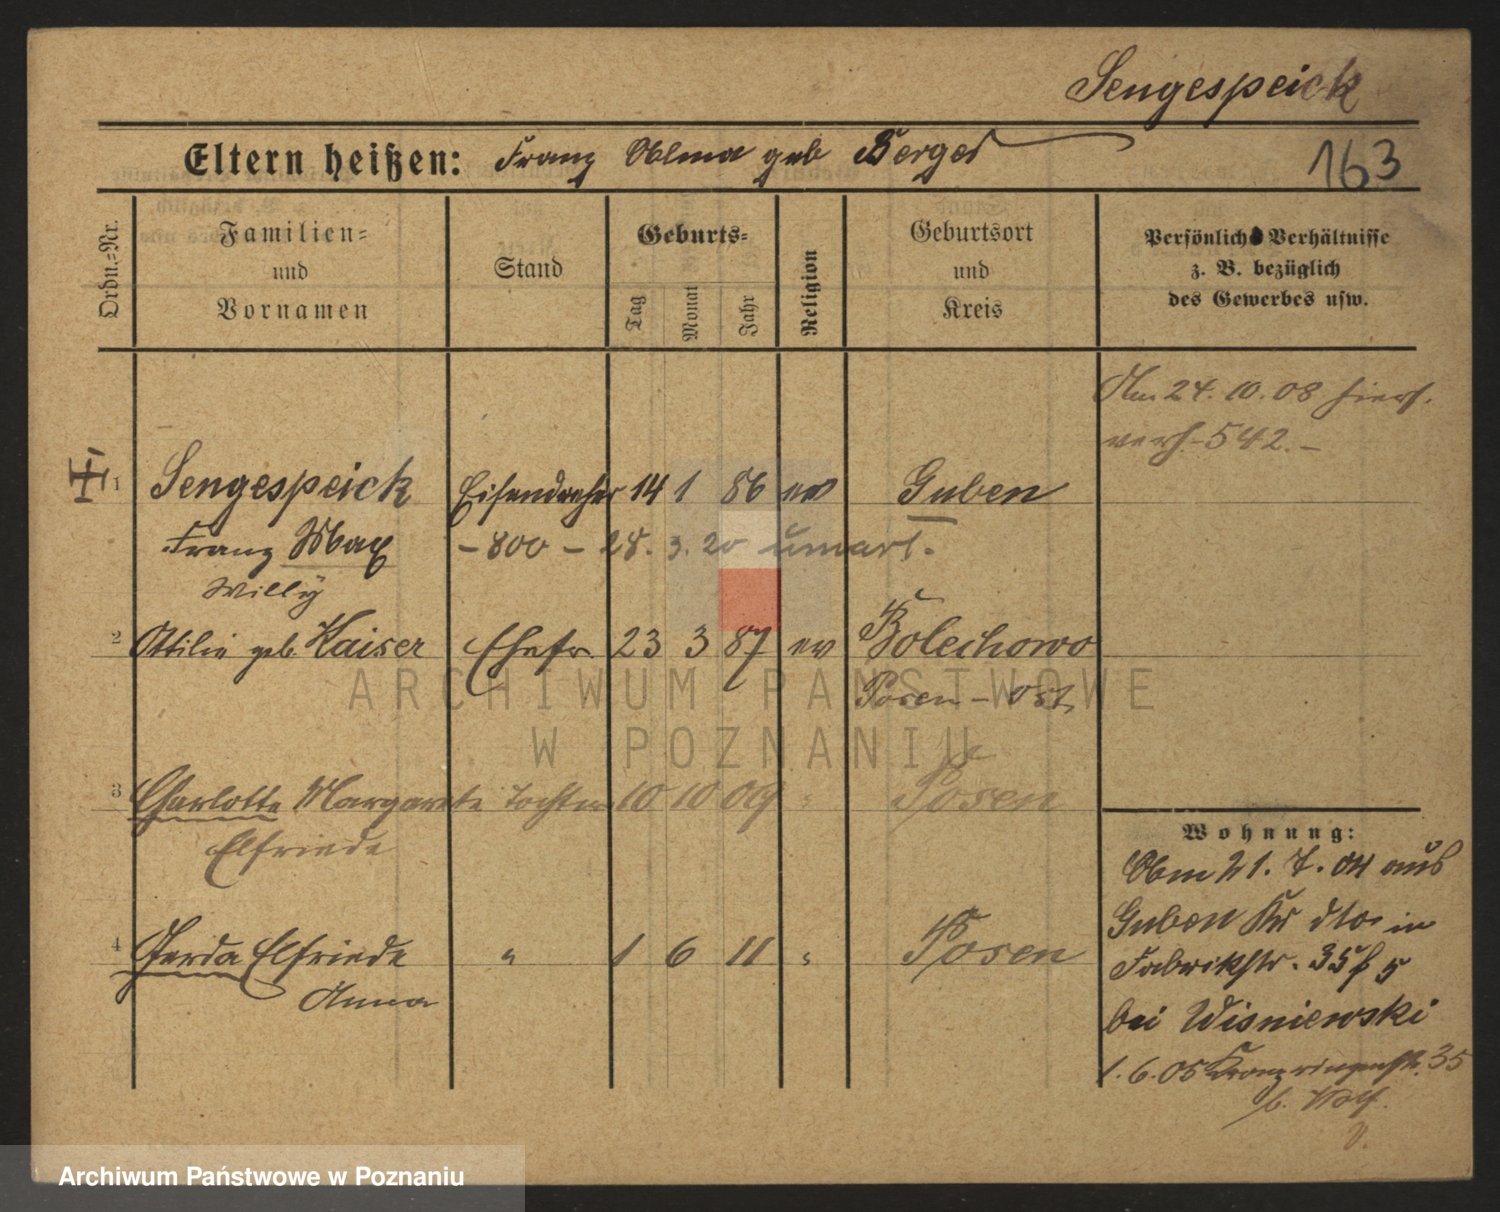 Sengespeick
Eltern heißen: Franz Alma geb Berger
163
Ordn.-Nr.
Familien-
und
Vornamen
Stand
Geburts-
Tag
Monat
Jahr
Religion
Geburtsort
und
Kreis
Persönliche Verhältnisse
z. B. bezüglich
des Gewerbes usw.
Am 24. 10. 08 hiers.
verh. - 542. -
1 Sengespeick Eisendreher 14 1 86 ev Guben
Franz Max - 800 - 28. 3. 20 umart.
Willy
2 Ottilie geb. Kaiser Ehefr. 23 3 87 ev Bolechowo
Posen - Ost
3 Charlotte Margarete Tochter 10 10 09 " Posen
Elfriede
4 Gerda Elfriede " 1 6 11 " Posen
Anna
Wohnung:
Am 21. 7. 04 aus
Guben Kr dto in
Fabrikstr. 35
bei Wisniewski
1. 6. 05 35
ARCHIWUM PAŃSTWOWE
W POZNANIU
Archiwum Państwowe w Poznaniu